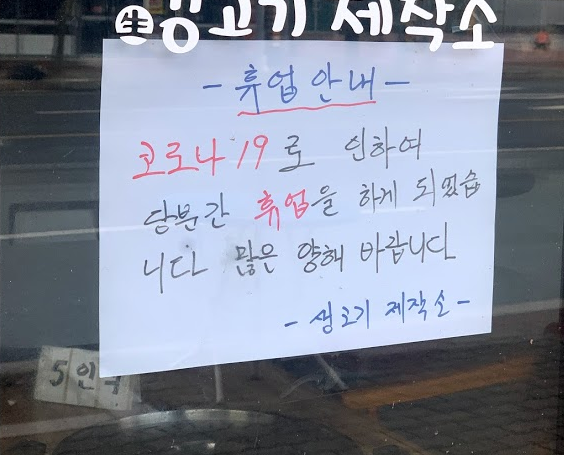 生 생고기 제작소
- 휴업 안내 -
코로나 19 로 인하여
당분간 휴업을 하게 되었습
니다 많은 양해 바랍니다
- 생고기 제작소 -
5인